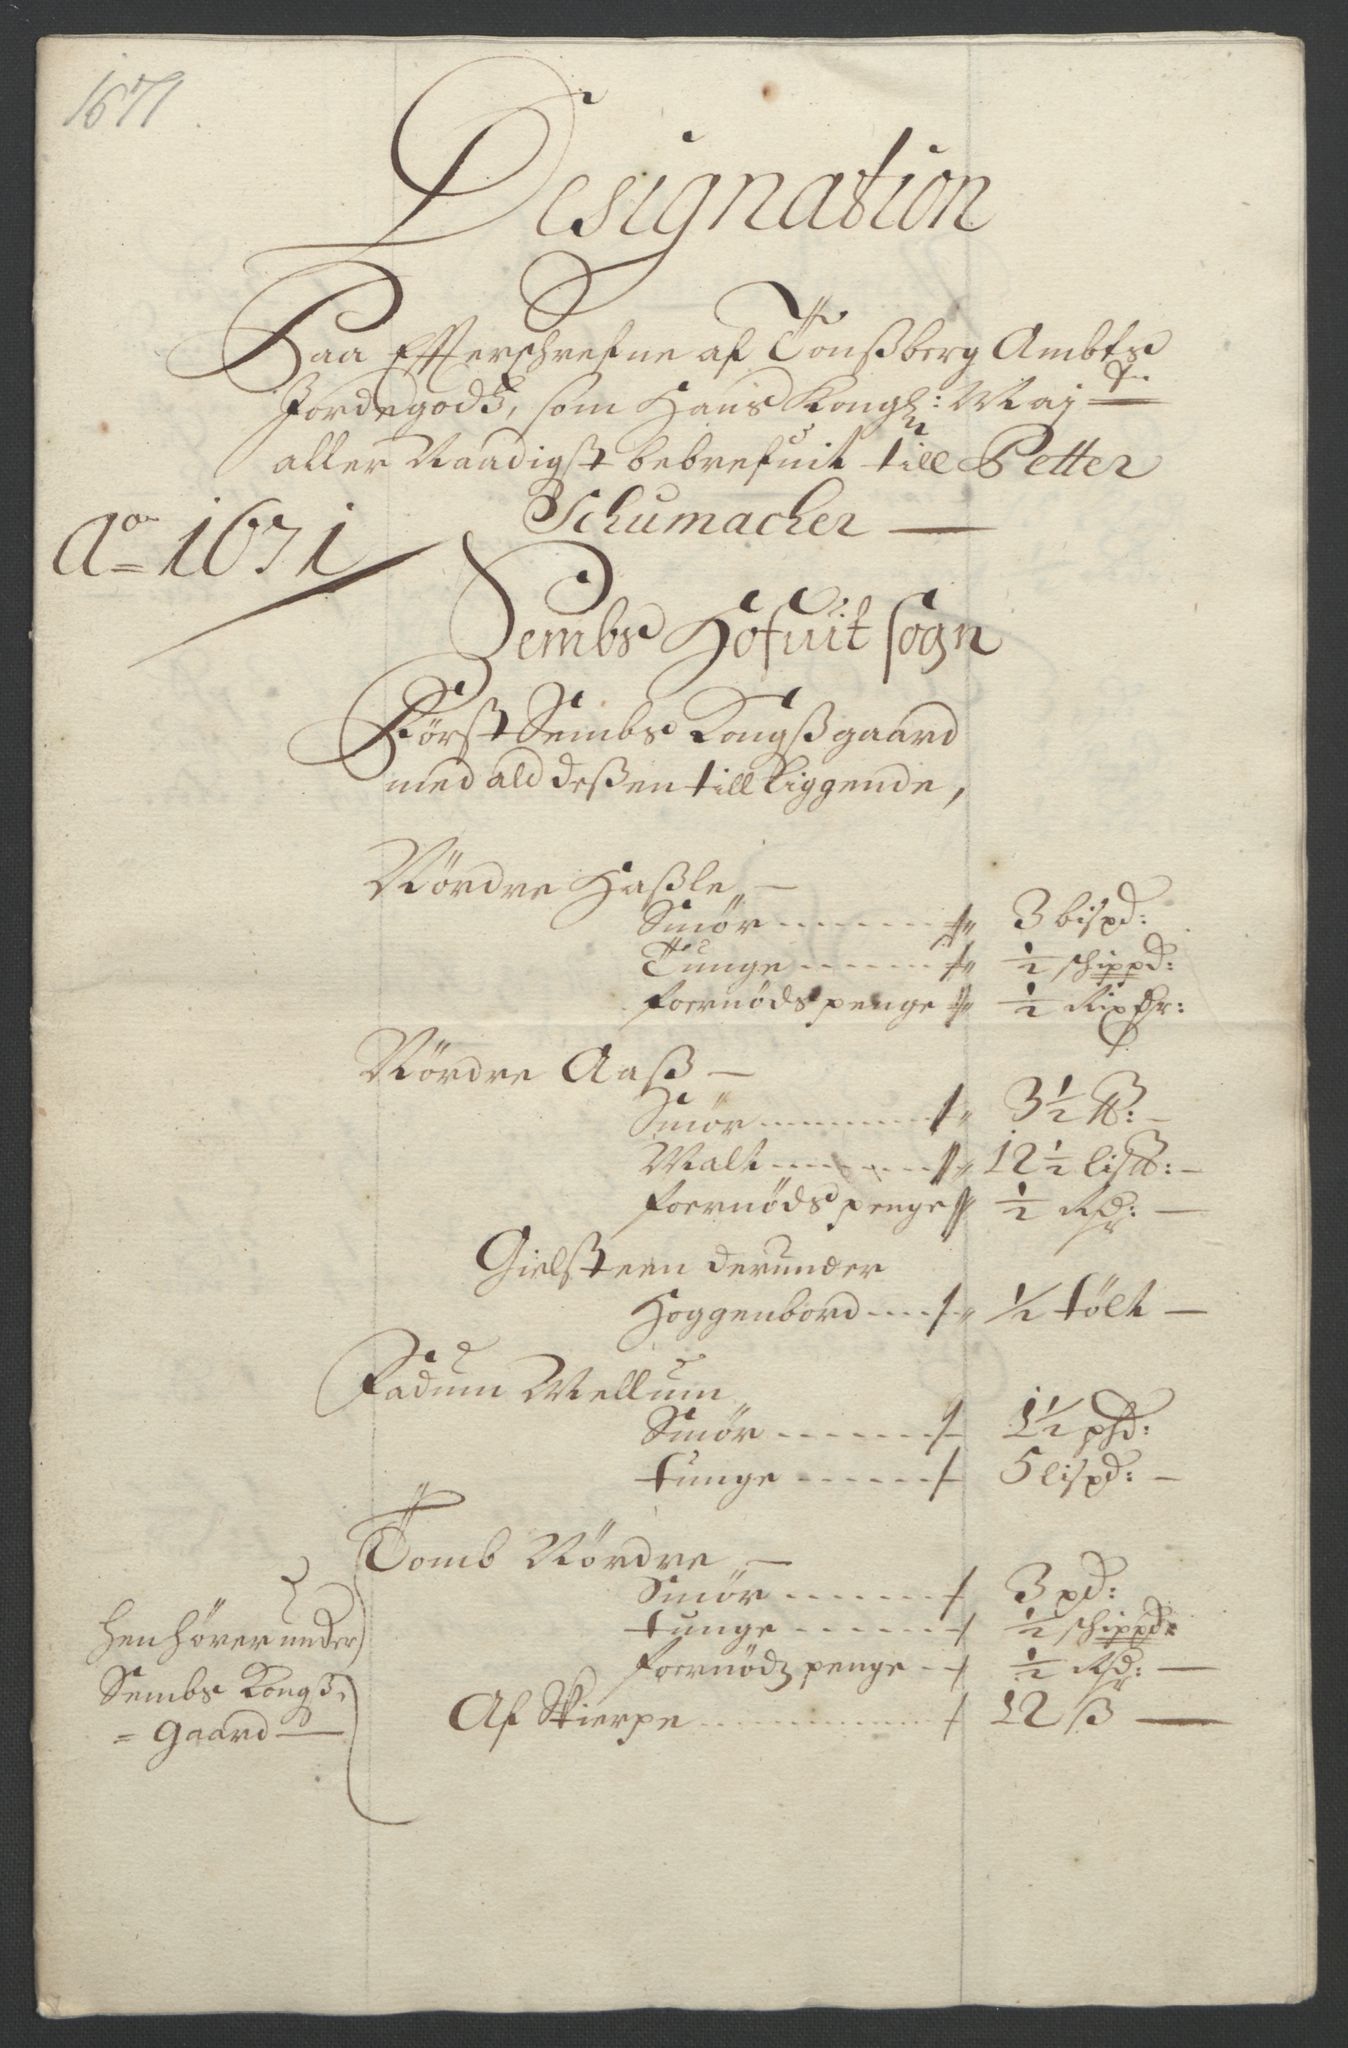 1671
Designation
Paa Effterschrefne af Tonßberg Ambts
Jordegodß, som Hans Kongl: Maj tt
aller Naadigst bebrefuit till Petter
Schumacher —
Ao = 1671
Sembs Hofuit sogn
Först Sembs Kongßgaard
med ald deßen till liggende,
Nördre Haßle —
Smör ........ 3 bispd:
Tunge ...... ½ schippd:
foernödspenge ½ Rixdr:
Nördre Aaß —
Smör ........ 3½ ℔: —
Malt ........ 12½ lis℔: —
foernödspenge ½ Rdr: —
Gielsteen derunder
Hoggenbord .... ½ tölt —
Fadum Mellum
Smör ........ 1½ pd:
tunge ....... 5 lispd: —
Tomb Nördre —
Smör ....... 3 pd:
tunge ...... ½ schippd:
foernödz penge .. ½ Rdr: —
Af Skierpe ............ 12 ß —
henhörer under
Sembs Kongß
= gaard —